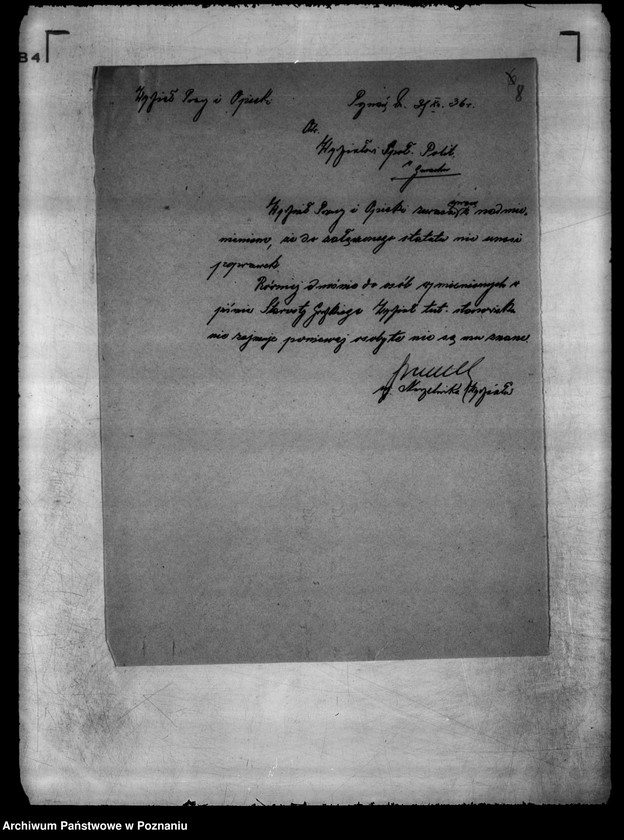 84
8
Wydział Pracy i Opieki
Poznań, d. XI. 36 r.
Do
Wydziału Społ. Polit.
w
Wydział Pracy i Opieki zwracając sprawę nadmie-
niniem, że do załączonego statutu nie wnosi
poprawek.
Również odnośnie do osób wymienionych w
piśmie Starosty Grodzkiego Wydział tut. stanowiska
nie zajmuje ponieważ osoby te nie są mu znane.
Naczelnik Wydziału
Archiwum Państwowe w Poznaniu